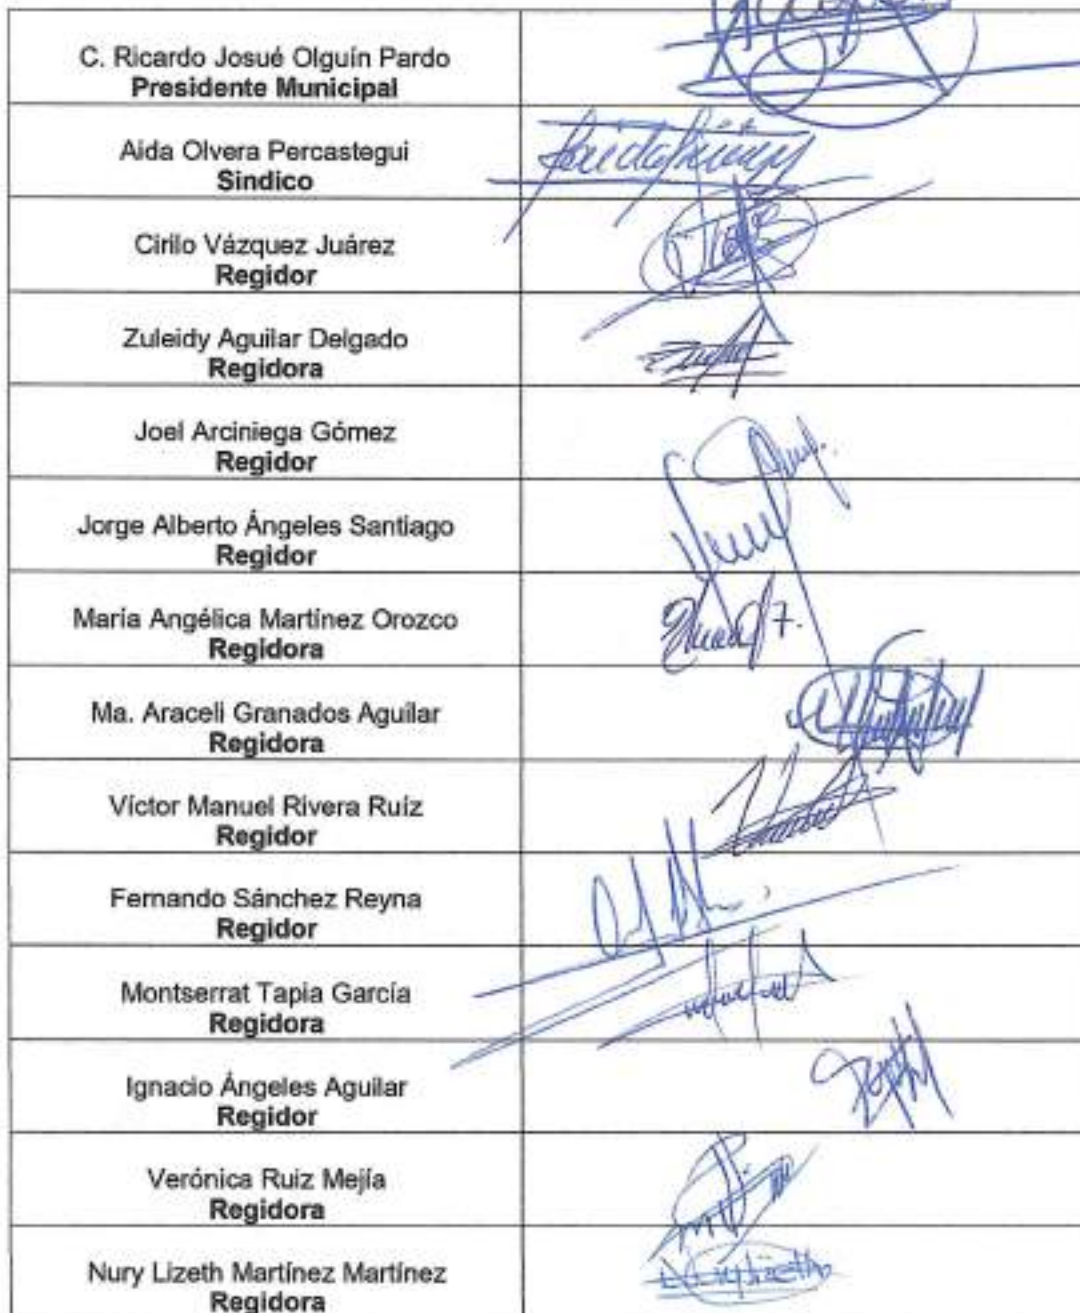 C. Ricardo Josué Olguín Pardo
Presidente Municipal
Aida Olvera Percastegui
Sindico
Cirilo Vázquez Juárez
Regidor
Zuleidy Aguilar Delgado
Regidora
Joel Arciniega Gómez
Regidor
Jorge Alberto Ángeles Santiago
Regidor
María Angélica Martínez Orozco
Regidora
Ma. Araceli Granados Aguilar
Regidora
Víctor Manuel Rivera Ruíz
Regidor
Fernando Sánchez Reyna
Regidor
Montserrat Tapia García
Regidora
Ignacio Ángeles Aguilar
Regidor
Verónica Ruiz Mejía
Regidora
Nury Lizeth Martínez Martínez
Regidora